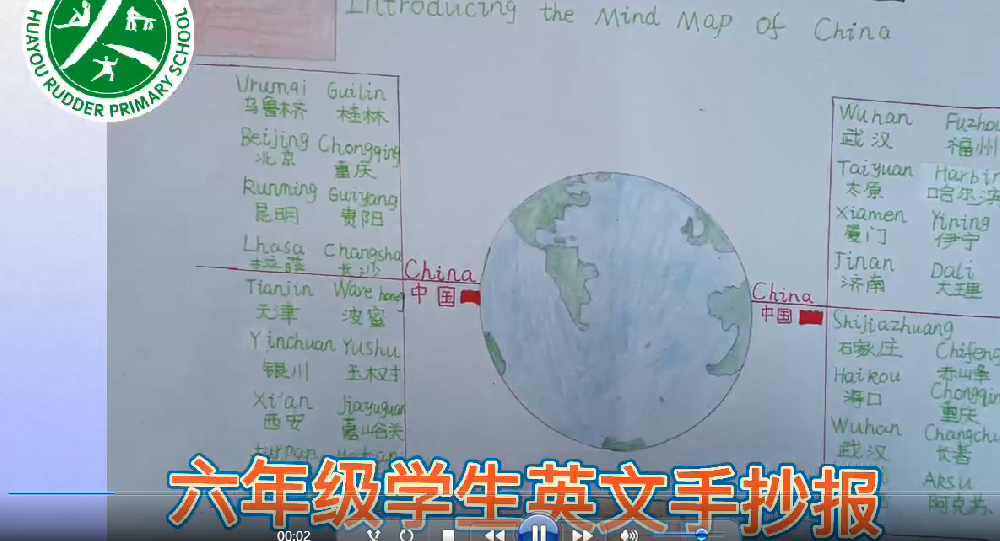 HUAYOU RUDDER PRIMARY SCHOOL
Introducing the Mind Map of China
Urumqi Guilin
乌鲁木齐 桂林
Beijing Chongqing
北京 重庆
Kunming Guiyang
昆明 贵阳
Lhasa Changsha
拉萨 长沙
China
中国
Tianjin Wave hong
天津 波蜜
Yinchuan Yushu
银川 玉树
Xi'an jiayuguan
西安 嘉峪关
Wuhan Fuzhou
武汉 福州
Taiyuan Harbin
太原 哈尔滨
Xiamen Yining
厦门 伊宁
Jinan Dali
济南 大理
China
中国
Shijiazhuang
石家庄 Chifeng
Haikou 赤峰
海口 Chongqin
重庆
Wuhan Changchu
武汉 长春
Aksu
阿克
六年级学生英文手抄报
00:02